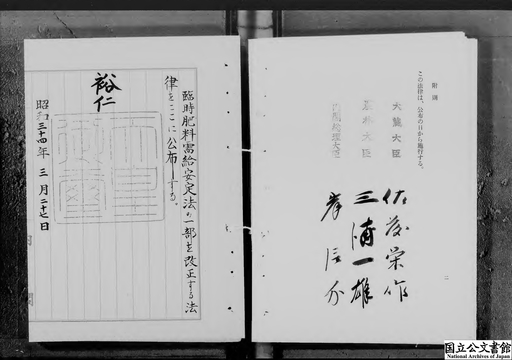 臨時肥料需給安定法の一部を改正する法
律をここに公布する。
裕仁
昭和三十四年三月二十七日
附則
この法律は、公布の日から施行する。
大蔵大臣 佐藤栄作
農林大臣 三浦一雄
内閣総理大臣 岸信介
二
国立公文書館
National Archives of Japan